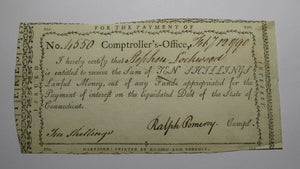 FOR THE PAYMENT OF
No. 4550 Comptroller's-Office, Feb 12 1790
I hereby certify that Stephen Lockwood
is entitled to receive the Sum of TEN SHILLINGS
Lawful Money, out of any Funds appropriated for the
Payment of interest on the Liquidated Debt of the State of
Connecticut.
Ten Shillings
Ralph Pomeroy Compt.
HARTFORD: PRINTED BY HUDSON AND GOODWIN.